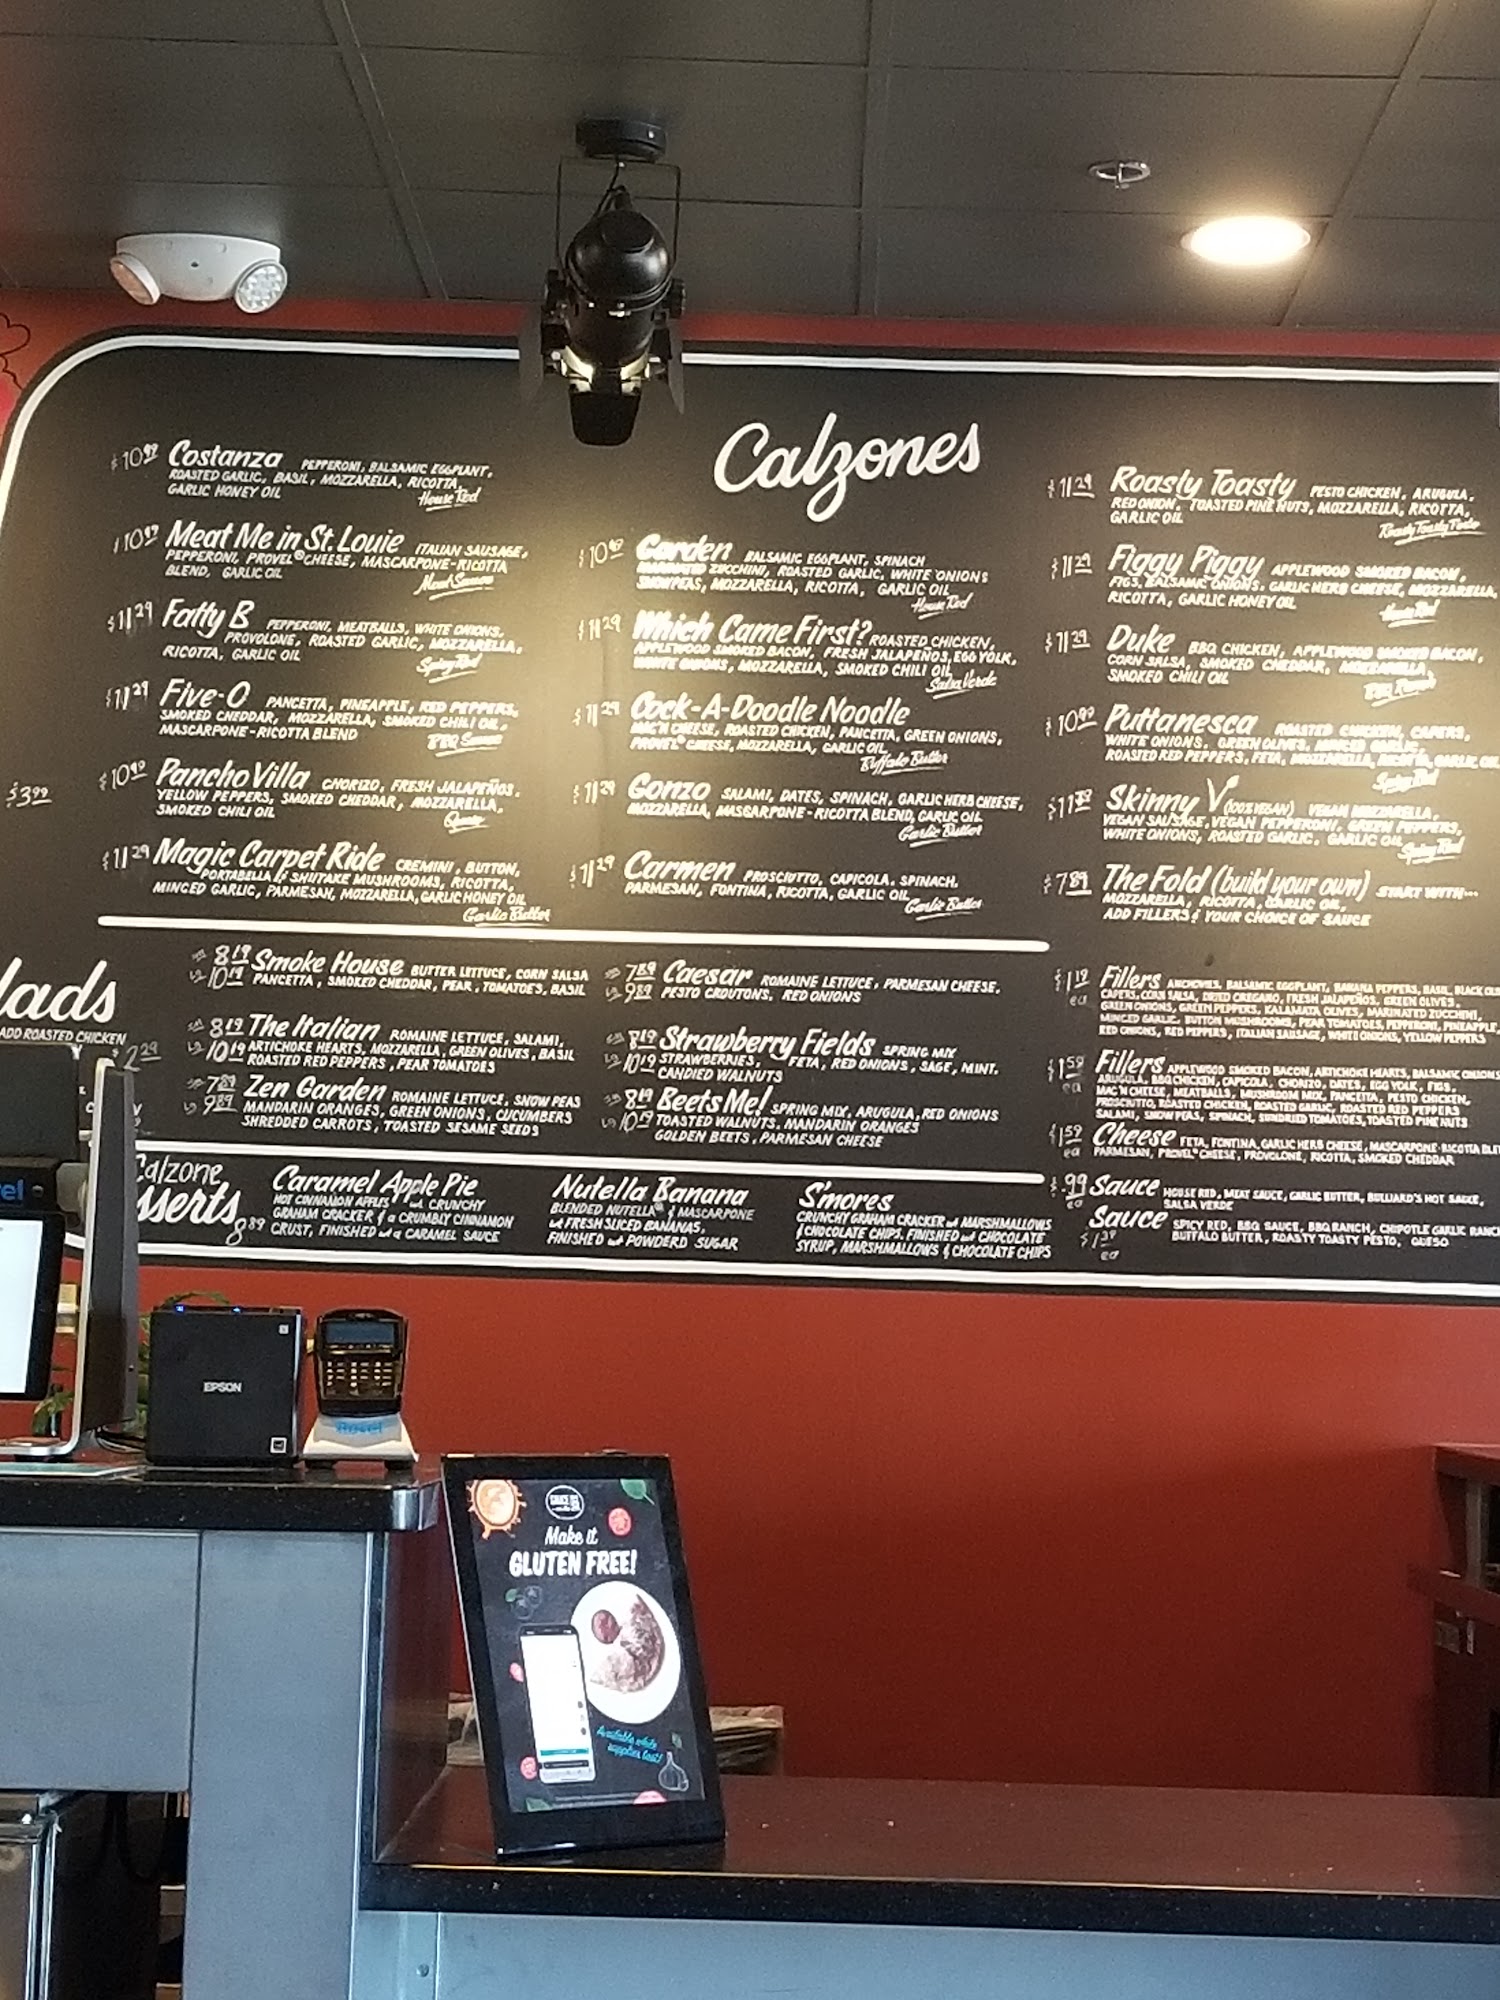 Calzones
$10.99 Costanza PEPPERONI, BALSAMIC EGGPLANT,
ROASTED GARLIC, BASIL, MOZZARELLA, RICOTTA,
GARLIC HONEY OIL House Red
Meat Me in St. Louie ITALIAN SAUSAGE,
PEPPERONI, PROVEL® CHEESE, MASCARPONE-RICOTTA
BLEND, GARLIC OIL Meat Sauce
$11.29 Fatty B PEPPERONI, MEATBALLS, WHITE ONIONS,
PROVOLONE, ROASTED GARLIC, MOZZARELLA,
RICOTTA, GARLIC OIL Spicy Red
$11.29 Five-O PANCETTA, PINEAPPLE, RED PEPPERS,
SMOKED CHEDDAR, MOZZARELLA, SMOKED CHILI OIL,
MASCARPONE-RICOTTA BLEND BBQ Sauce
$10.99 Pancho Villa CHORIZO, FRESH JALAPEÑOS,
YELLOW PEPPERS, SMOKED CHEDDAR, MOZZARELLA,
SMOKED CHILI OIL Queso
$11.29 Magic Carpet Ride CREMINI, BUTTON,
PORTABELLA & SHIITAKE MUSHROOMS, RICOTTA,
MINCED GARLIC, PARMESAN, MOZZARELLA, GARLIC HONEY OIL
Garlic Butter
$3.99
Garden BALSAMIC EGGPLANT, SPINACH
MARINATED ZUCCHINI, ROASTED GARLIC, WHITE ONIONS
SNOWPEAS, MOZZARELLA, RICOTTA, GARLIC OIL
House Red
$11.29 Which Came First? ROASTED CHICKEN,
APPLEWOOD SMOKED BACON, FRESH JALAPEÑOS, EGG YOLK,
WHITE ONIONS, MOZZARELLA, SMOKED CHILI OIL
Salsa Verde
$11.29 Cock-A-Doodle Noodle
MAC'N CHEESE, ROASTED CHICKEN, PANCETTA, GREEN ONIONS,
PROVEL® CHEESE, MOZZARELLA, GARLIC OIL
Buffalo Butter
$11.29 Gonzo SALAMI, DATES, SPINACH, GARLIC HERB CHEESE,
MOZZARELLA, MASCARPONE-RICOTTA BLEND, GARLIC OIL
Garlic Butter
$11.29 Carmen PROSCIUTTO, CAPICOLA, SPINACH,
PARMESAN, FONTINA, RICOTTA, GARLIC OIL
Garlic Butter
$11.29 Roasty Toasty PESTO CHICKEN, ARUGULA,
RED ONION, TOASTED PINE NUTS, MOZZARELLA, RICOTTA,
GARLIC OIL Roasty Toasty Pesto
$11.29 Figgy Piggy APPLEWOOD SMOKED BACON,
FIGS, BALSAMIC ONIONS, GARLIC HERB CHEESE, MOZZARELLA,
RICOTTA, GARLIC HONEY OIL House Red
$11.29 Duke BBQ CHICKEN, APPLEWOOD SMOKED BACON,
CORN SALSA, SMOKED CHEDDAR, MOZZARELLA,
SMOKED CHILI OIL BBQ Ranch
$10.99 Puttanesca ROASTED CHICKEN, CAPERS,
WHITE ONIONS, GREEN OLIVES, MINCED GARLIC,
ROASTED RED PEPPERS, FETA, MOZZARELLA, RICOTTA, GARLIC OIL
Spicy Red
Skinny V (100% VEGAN) VEGAN MOZZARELLA,
VEGAN SAUSAGE, VEGAN PEPPERONI, GREEN PEPPERS,
WHITE ONIONS, ROASTED GARLIC, GARLIC OIL Spicy Red
$7.89 The Fold (build your own) START WITH...
MOZZARELLA, RICOTTA, GARLIC OIL,
ADD FILLERS & YOUR CHOICE OF SAUCE
lads
ADD ROASTED CHICKEN
2.29
8.19 Smoke House BUTTER LETTUCE, CORN SALSA
10.19 PANCETTA, SMOKED CHEDDAR, PEAR TOMATOES, BASIL
8.19 The Italian ROMAINE LETTUCE, SALAMI,
10.19 ARTICHOKE HEARTS, MOZZARELLA, GREEN OLIVES, BASIL
ROASTED RED PEPPERS, PEAR TOMATOES
7.89 Zen Garden ROMAINE LETTUCE, SNOW PEAS
9.89 MANDARIN ORANGES, GREEN ONIONS, CUCUMBERS
SHREDDED CARROTS, TOASTED SESAME SEEDS
7.89 Caesar ROMAINE LETTUCE, PARMESAN CHEESE,
9.89 PESTO CROUTONS, RED ONIONS
8.19 Strawberry Fields SPRING MIX
10.19 STRAWBERRIES, FETA, RED ONIONS, SAGE, MINT,
CANDIED WALNUTS
8.19 Beets Me! SPRING MIX, ARUGULA, RED ONIONS
10.19 TOASTED WALNUTS, MANDARIN ORANGES
GOLDEN BEETS, PARMESAN CHEESE
$1.19 ea Fillers ANCHOVIES, BALSAMIC EGGPLANT, BANANA PEPPERS, BASIL, BLACK OL
CAPERS, CORN SALSA, DRIED OREGANO, FRESH JALAPEÑOS, GREEN OLIVES,
GREEN ONIONS, GREEN PEPPERS, KALAMATA OLIVES, MARINATED ZUCCHINI,
MINCED GARLIC, BUTTON MUSHROOMS, PEAR TOMATOES, PEPPERONI, PINEAPPLE,
RED ONIONS, RED PEPPERS, ITALIAN SAUSAGE, WHITE ONIONS, YELLOW PEPPERS
$1.59 ea Fillers APPLEWOOD SMOKED BACON, ARTICHOKE HEARTS, BALSAMIC ONIONS
ARUGULA, BBQ CHICKEN, CAPICOLA, CHORIZO, DATES, EGG YOLK, FIGS,
MAC'N CHEESE, MEATBALLS, MUSHROOM MIX, PANCETTA, PESTO CHICKEN,
PROSCIUTTO, ROASTED CHICKEN, ROASTED GARLIC, ROASTED RED PEPPERS
SALAMI, SNOW PEAS, SPINACH, SUNDRIED TOMATOES, TOASTED PINE NUTS
$1.59 ea Cheese FETA, FONTINA, GARLIC HERB CHEESE, MASCARPONE-RICOTTA BLE
PARMESAN, PROVEL® CHEESE, PROVOLONE, RICOTTA, SMOKED CHEDDAR
$.99 ea Sauce HOUSE RED, MEAT SAUCE, GARLIC BUTTER, BULLIARD'S HOT SAUCE,
SALSA VERDE
Sauce SPICY RED, BBQ SAUCE, BBQ RANCH, CHIPOTLE GARLIC RANC
ea BUFFALO BUTTER, ROASTY TOASTY PESTO, QUESO
Calzone
sserts
8.89
Caramel Apple Pie
HOT CINNAMON APPLES w/ CRUNCHY
GRAHAM CRACKER & a CRUMBLY CINNAMON
CRUST, FINISHED w/ a CARAMEL SAUCE
Nutella Banana
BLENDED NUTELLA® & MASCARPONE
w/ FRESH SLICED BANANAS,
FINISHED w/ POWDERD SUGAR
S'mores
CRUNCHY GRAHAM CRACKER w/ MARSHMALLOWS
& CHOCOLATE CHIPS. FINISHED w/ CHOCOLATE
SYRUP, MARSHMALLOWS & CHOCOLATE CHIPS
EPSON
Make it
GLUTEN FREE!
Available while
supplies last!